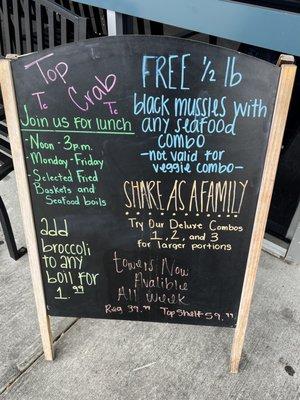 Top
Crab
Tc
Tc
Join us for lunch
-Noon-3p.m.
-Monday-Friday
-Selected Fried
Baskets and
Seafood boils
add
broccoli
to any
boil for
1.99
FREE ½ lb
black mussles with
any seafood
combo
-not valid for
veggie combo-
SHARE AS A FAMILY
Try Our Deluxe Combos
1, 2, and 3
for larger portions
Towers Now
Avalible
All Week
Reg 39.99 Top Shelf 59.99